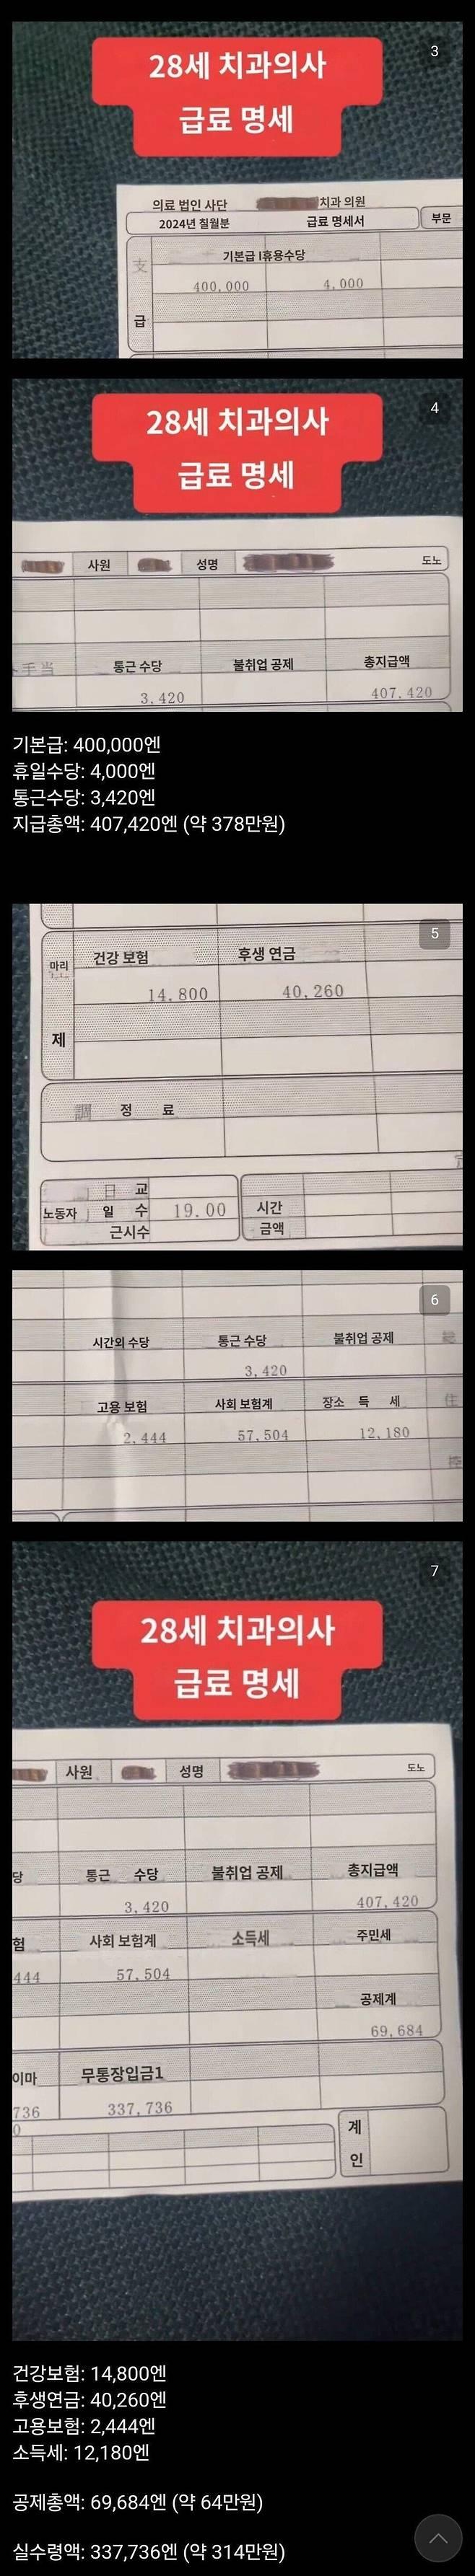 3
28세 치과의사
급료 명세
의료 법인 사단 치과 의원
2024년 칠월분 급료 명세서 부문
支 기본급 I휴용수당
400,000 4,000
급
4
28세 치과의사
급료 명세
사원 성명 도노
手当 통근 수당 불취업 공제 총지급액
3,420 407,420
기본급: 400,000엔
휴일수당: 4,000엔
통근수당: 3,420엔
지급총액: 407,420엔 (약 378만원)
5
마리 건강 보험 후생 연금
14,800 40,260
제
調 정 료
日 교
노동자 일 수 19.00 시간
근시수 금액
6
시간외 수당 통근 수당 불취업 공제
3,420
고용 보험 사회 보험계 장소 득 세 住
2,444 57,504 12,180
7
28세 치과의사
급료 명세
사원 성명 도노
당 통근 수당 불취업 공제 총지급액
3,420 407,420
험 사회 보험계 소득세 주민세
444 57,504
공제계
69,684
이마 무통장입금1
736 337,736
0
계
인
건강보험: 14,800엔
후생연금: 40,260엔
고용보험: 2,444엔
소득세: 12,180엔
공제총액: 69,684엔 (약 64만원)
실수령액: 337,736엔 (약 314만원)